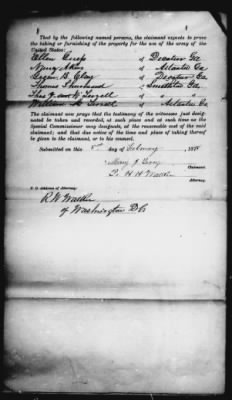 That by the following named persons, the claimant expects to prove
the taking or furnishing of the property for the use of the army of the
United States:
Ellen of Decatur Ga
Nancy Akins of Atlanta Ga
B. Clay of Decatur Ga
Thomas of Ga
of " "
William of Atlanta Ga
The claimant now prays that the testimony of the witnesses just desig-
nated be taken and recorded, at such place and at such time as the
Special Commissioner may designate, at the reasonable cost of the said
claimant; and that due notice of the time and place of taking thereof
be given to the claimant, or to his counsel.
Submitted on this day of February 187
Mary J
Claimant.
Pr H H Walker
Attorney.
P. O. Address of Attorney.
R W Walker
of Washington D C